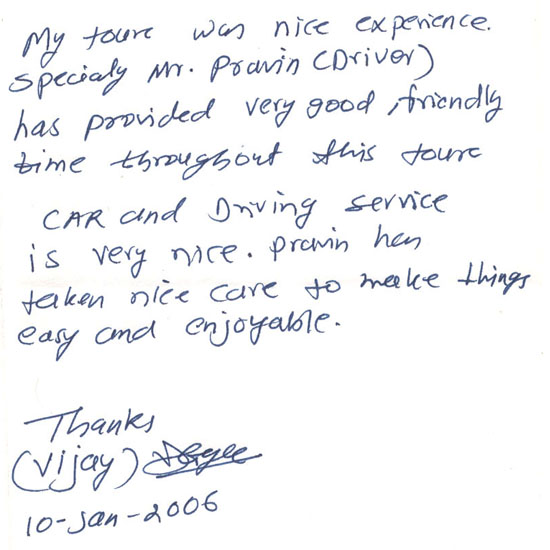 My toure was nice experience.
Specialy Mr. Pravin (Driver)
has provided very good, friendly
time throughout this toure
CAR and Driving service
is very nice. Pravin has
taken nice care to make things
easy and enjoyable.
Thanks
(Vijay)
10-Jan-2006